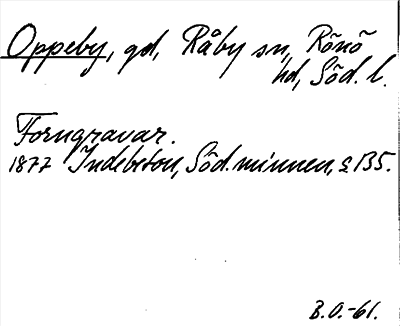 Oppeby, gd, Råby sn, Rönö
hd, Söd. l.
Forngravar.
1877 Indebetou, Söd. minnen, s 135.
B.O.-61.